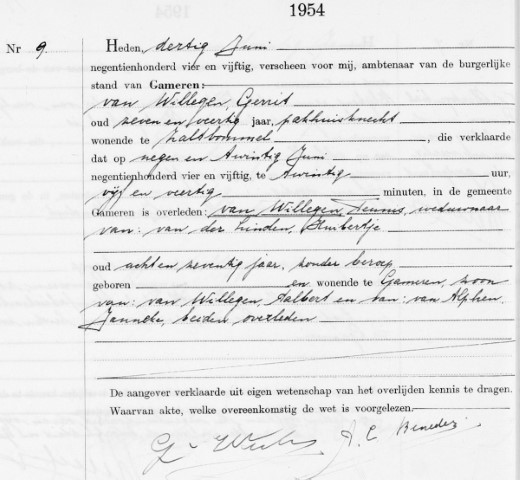 1954
Nr 9. Heden, dertig Juni
negentienhonderd vier en vijftig, verscheen voor mij, ambtenaar van de burgerlijke
stand van Gameren:
van Willegen, Gerrit
oud zeven en veertig jaar, pakhuisknecht
wonende te Zaltbommel, die verklaarde
dat op negen en twintig Juni
negentienhonderd vier en vijftig, te twintig uur,
vijf en veertig minuten, in de gemeente
Gameren is overleden: van Willegen, Teunis, weduwnaar
van: van der Linden, Huibertje
oud acht en zeventig jaar, zonder beroep
geboren en wonende te Gameren, zoon
van: van Willegen, Aalbert en van: van Alphen,
Janneke, beiden overleden
De aangever verklaarde uit eigen wetenschap van het overlijden kennis te dragen.
Waarvan akte, welke overeenkomstig de wet is voorgelezen.